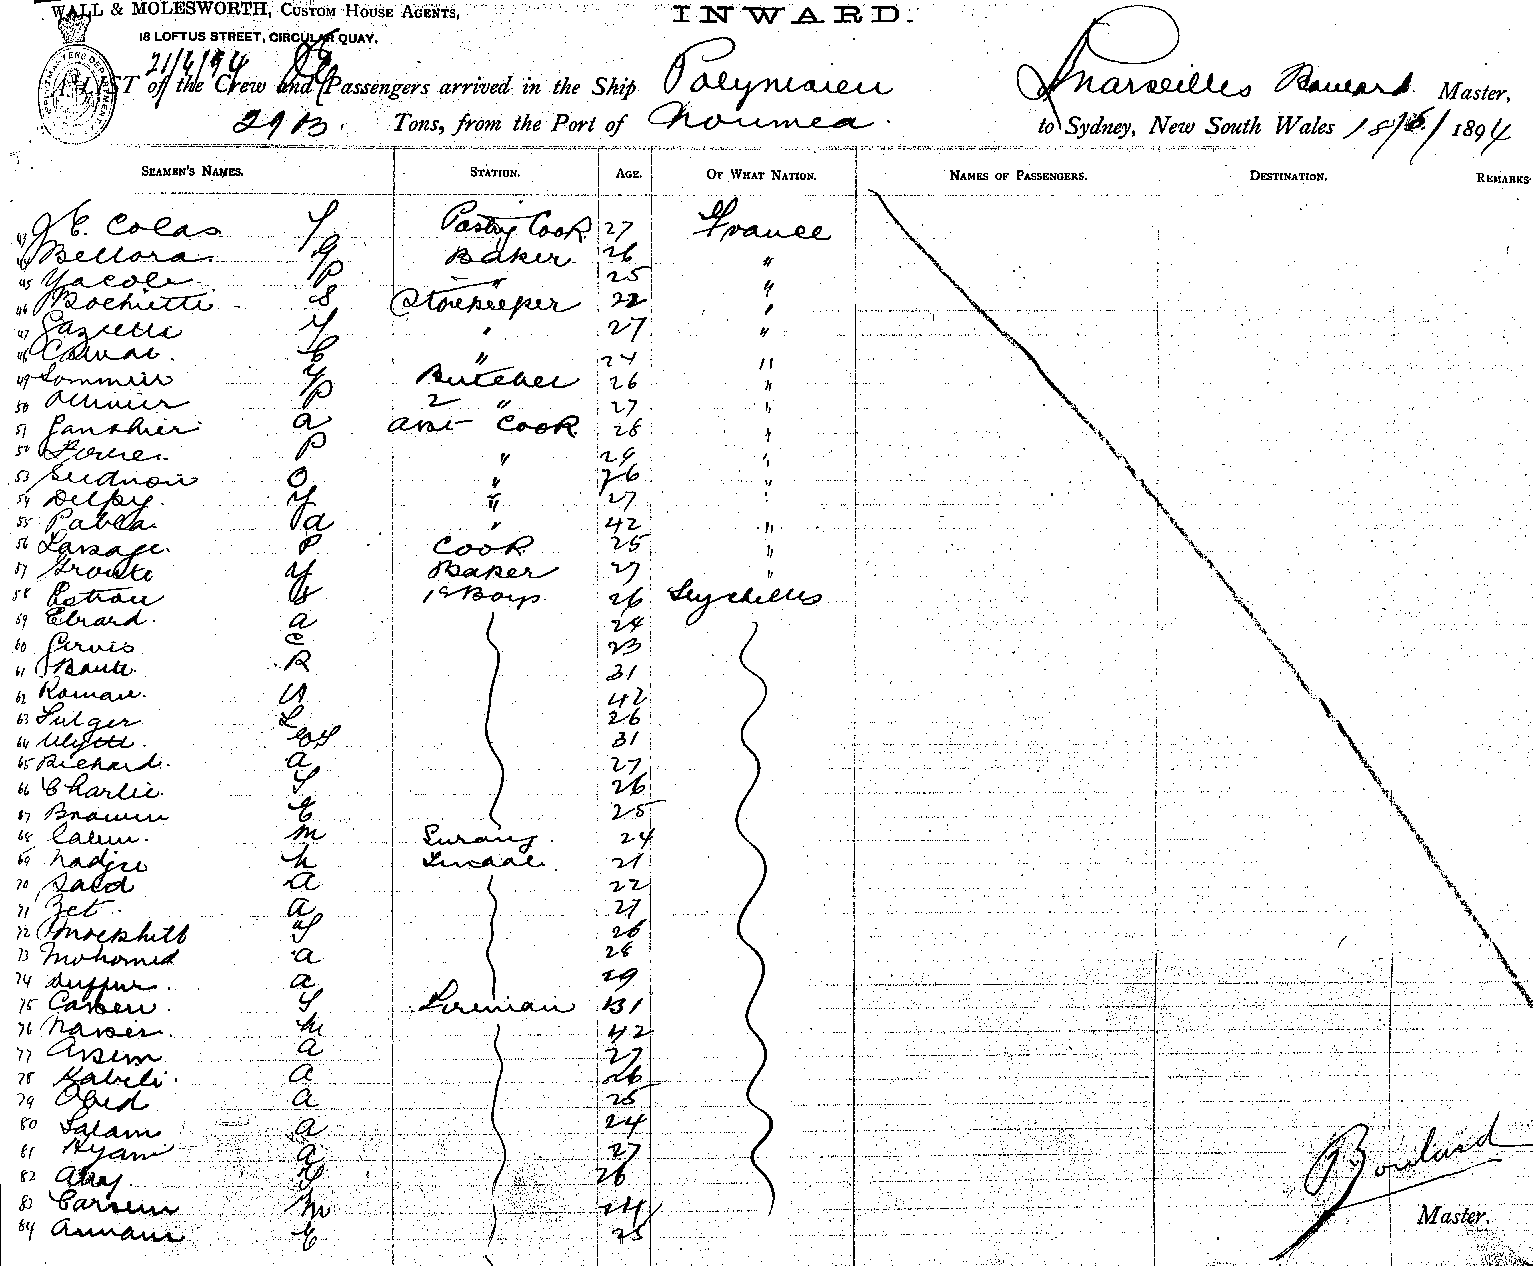 WALL & MOLESWORTH, CUSTOM HOUSE AGENTS,
18 LOFTUS STREET, CIRCULAR QUAY.
INWARD.
21/6/94
A LIST of the Crew and Passengers arrived in the Ship Polynesien Marseilles Master,
2913. Tons, from the Port of Noumea. to Sydney, New South Wales 18/6/1894
SEAMEN'S NAMES. STATION. AGE. OF WHAT NATION. NAMES OF PASSENGERS. DESTINATION. REMARKS
43 J E. Colas Pastry Cook 27 France
Bellora Baker 26 "
45 Yacole P " 25 "
46 Bochietti S Storekeeper 22 "
47 " 27 "
48 " 24 "
49 Sommier Butcher 26 "
50 Ollivier P 2 " 27 "
51 a asst Cook 28 "
52 P " 29 "
53 O " 26 "
54 Delpy " 27 "
55 Pabla a " 42 "
56 Lavsage P Cook 25 "
57 Baker 27 "
58 Estrau 1s Boys 26 Seychelles
59 Ebrard a 24
60 Gervis C 23
61 R 31
62 Roman 42
63 Sulger L 26
64 31
65 Richard a 27
66 Charlie 26
67 25
68 Calem M Surang 24
69 Nadju 21
70 Said a 22
71 Zet a 27
72 26
73 Mohomed a 28
74 a 29
75 Cassen Fireman 31
76 Nasser 42
77 Assem a 27
78 Kabili a 26
79 Obed a 25
80 Salam a 24
81 Hyam a 27
82 26
83 Carsem M 24
84 25
Boulard
Master.